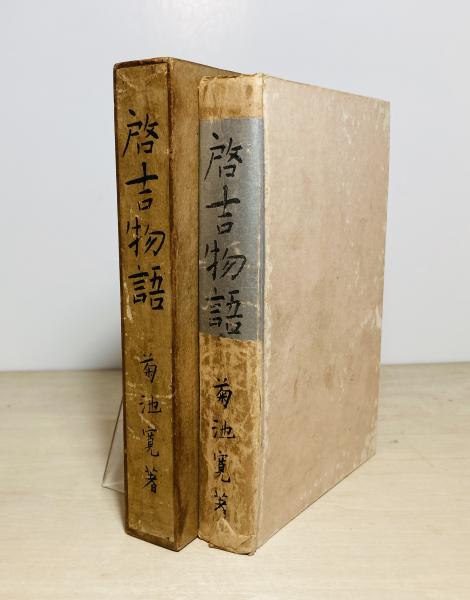 啓吉物語
菊池寛著
啓吉物語
菊池寛著